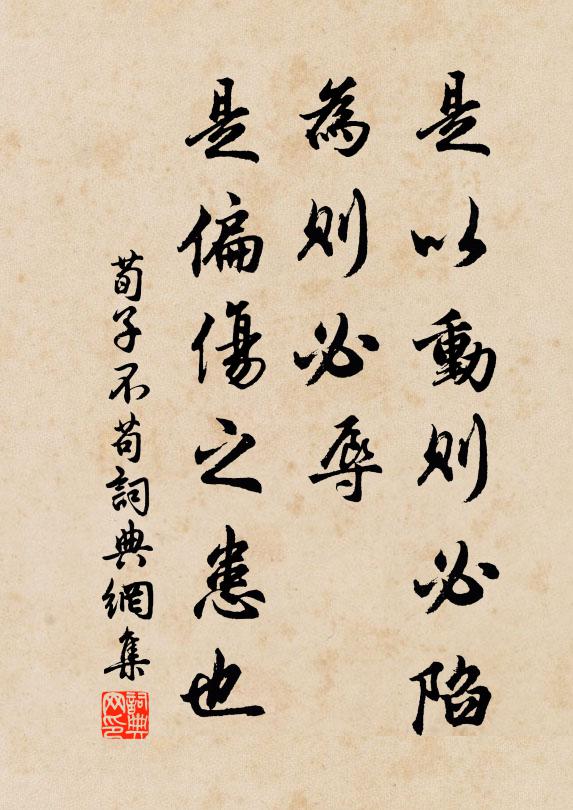 是以動則必陷
為則必辱
是偏傷之患也
荀子不苟詞典網集
詞典网印